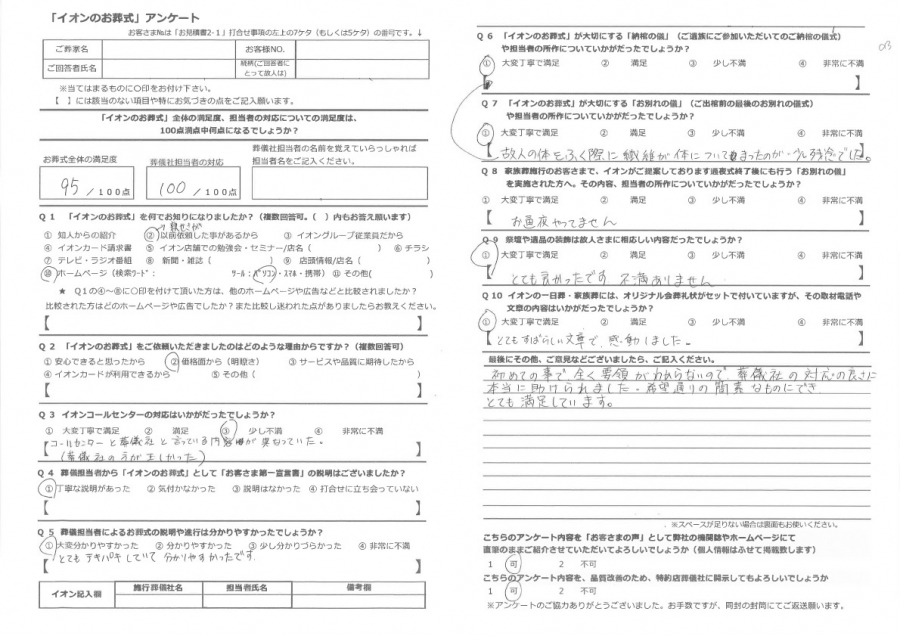 「イオンのお葬式」アンケート
お客さま№は「お見積書2-1」打合せ事項の左上の7ケタ（もしくは5ケタ）の番可です。↓
ご葬家名
お客様NO.
ご回答者氏名
続柄(ご回答者にとって故人は)
※当てはまるものに○印をお付け下さい。
【　】には該当のない項目や特にお気づきの点をご記入願います。
「イオンのお葬式」全体の満足度、担当者の対応についての満足度は、
100点満点中何点になるでしょうか？
お葬式全体の満足度
95 / 100点
葬儀社担当者の対応
100 / 100点
葬儀社担当者の名前を覚えていらっしゃれば
担当者名をご記入ください。
Q１　「イオンのお葬式」を何でお知りになりましたか？（複数回答可。（　）内もお答え願います）
① 知人からの紹介　② 以前依頼した事があるから　③ イオングループ従業員だから
④ イオンカード請求書　⑤ イオン店舗での勉強会・セミナー/店名（　）　⑥ チラシ
⑦ テレビ・ラジオ番組　⑧ 新聞・雑誌（　）　⑨ 店頭情報/店名（　）
⑩ ホームページ（検索ﾜｰﾄﾞ：　ﾂｰﾙ：パソコン・ｽﾏﾎ・携帯）　⑪ その他（　）
★　Q１の④～⑧に○印を付けて頂いた方は、他のホームページや広告などと比較されましたか？
比較された方はどのホームページや広告でしたか？また比較し迷われた点がありましたらお教えください。
【　】
Q２　「イオンのお葬式」をご依頼いただきましたのはどのような理由からですか？（複数回答可）
① 安心できると思ったから　② 価格面から（明瞭さ）　③ サービスや品質に期待したから
④ イオンカードが利用できるから　⑤ その他（　）
【　】
Q３　イオンコールセンターの対応はいかがだったでしょうか？
①　大変丁寧で満足　②　満足　③　少し不満　④　非常に不満
【コールセンターと葬儀社と言っている内容が異なっていた。
（葬儀社の方が正しかった）】
Q４　葬儀担当者から「イオンのお葬式」として「お客さま第一宣言書」の説明はございましたか？
① 丁寧な説明があった　② 気付かなかった　③ 説明はなかった　④ 打合せに立ち会っていない
【　】
Q５　葬儀担当者によるお葬式の説明や進行は分かりやすかったでしょうか？
① 大変分かりやすかった　② 分かりやすかった　③ 少し分かりづらかった　④ 非常に不満
【とてもテキパキしていて分かりやすかったです】
イオン記入欄　施行葬儀社名　担当者氏名　備考欄
03
Q６　「イオンのお葬式」が大切にする「納棺の儀」（ご遺族にご参加いただいてのご納棺の儀式）
や担当者の所作についていかがだったでしょうか？
①　大変丁寧で満足　②　満足　③　少し不満　④　非常に不満
【　】
Q７　「イオンのお葬式」が大切にする「お別れの儀」（ご出棺前の最後のお別れの儀式）
や担当者の所作についていかがだったでしょうか？
①　大変丁寧で満足　②　満足　③　少し不満　④　非常に不満
【故人の体をふく際に繊維が体についてしまったのが少し残念でした。】
Q８　家族葬施行のお客さまで、イオンがご提案しております通夜式終了後にも行う「お別れの儀」
を実施された方へ。その内容、担当者の所作についていかがだったでしょうか？
①　大変丁寧で満足　②　満足　③　少し不満　④　非常に不満
【お通夜やってません】
Q９　祭壇や遺品の装飾は故人さまに相応しい内容だったでしょうか？
①　大変丁寧で満足　②　満足　③　少し不満　④　非常に不満
【とても良かったです 不満ありません】
Q10　イオンの一日葬・家族葬には、オリジナル会葬礼状がセットで付いていますが、その取材電話や
文章の内容はいかがだったでしょうか？
①　大変丁寧で満足　②　満足　③　少し不満　④　非常に不満
【とてもすばらしい文章で、感動しました。】
最後にその他、ご意見などございましたら、ご記入ください。
初めての事で全く要領がわからないので、葬儀社の対応の良さに
本当に助けられました。希望通りの簡素なものにでき
とても満足しています。
※スペースが足りない場合は裏面もお使いください。
こちらのアンケート内容を「お客さまの声」として弊社の機関誌やホームページにて
直筆のままご紹介させていただいてよろしいでしょうか（個人情報はふせて掲載致します）
1　可　2　不可
こちらのアンケート内容を、品質改善のため、特約店葬儀社に開示してもよろしいでしょうか
1　可　2　不可
※アンケートのご協力ありがとうございました。お手数ですが、同封の封筒にてご返送願います。